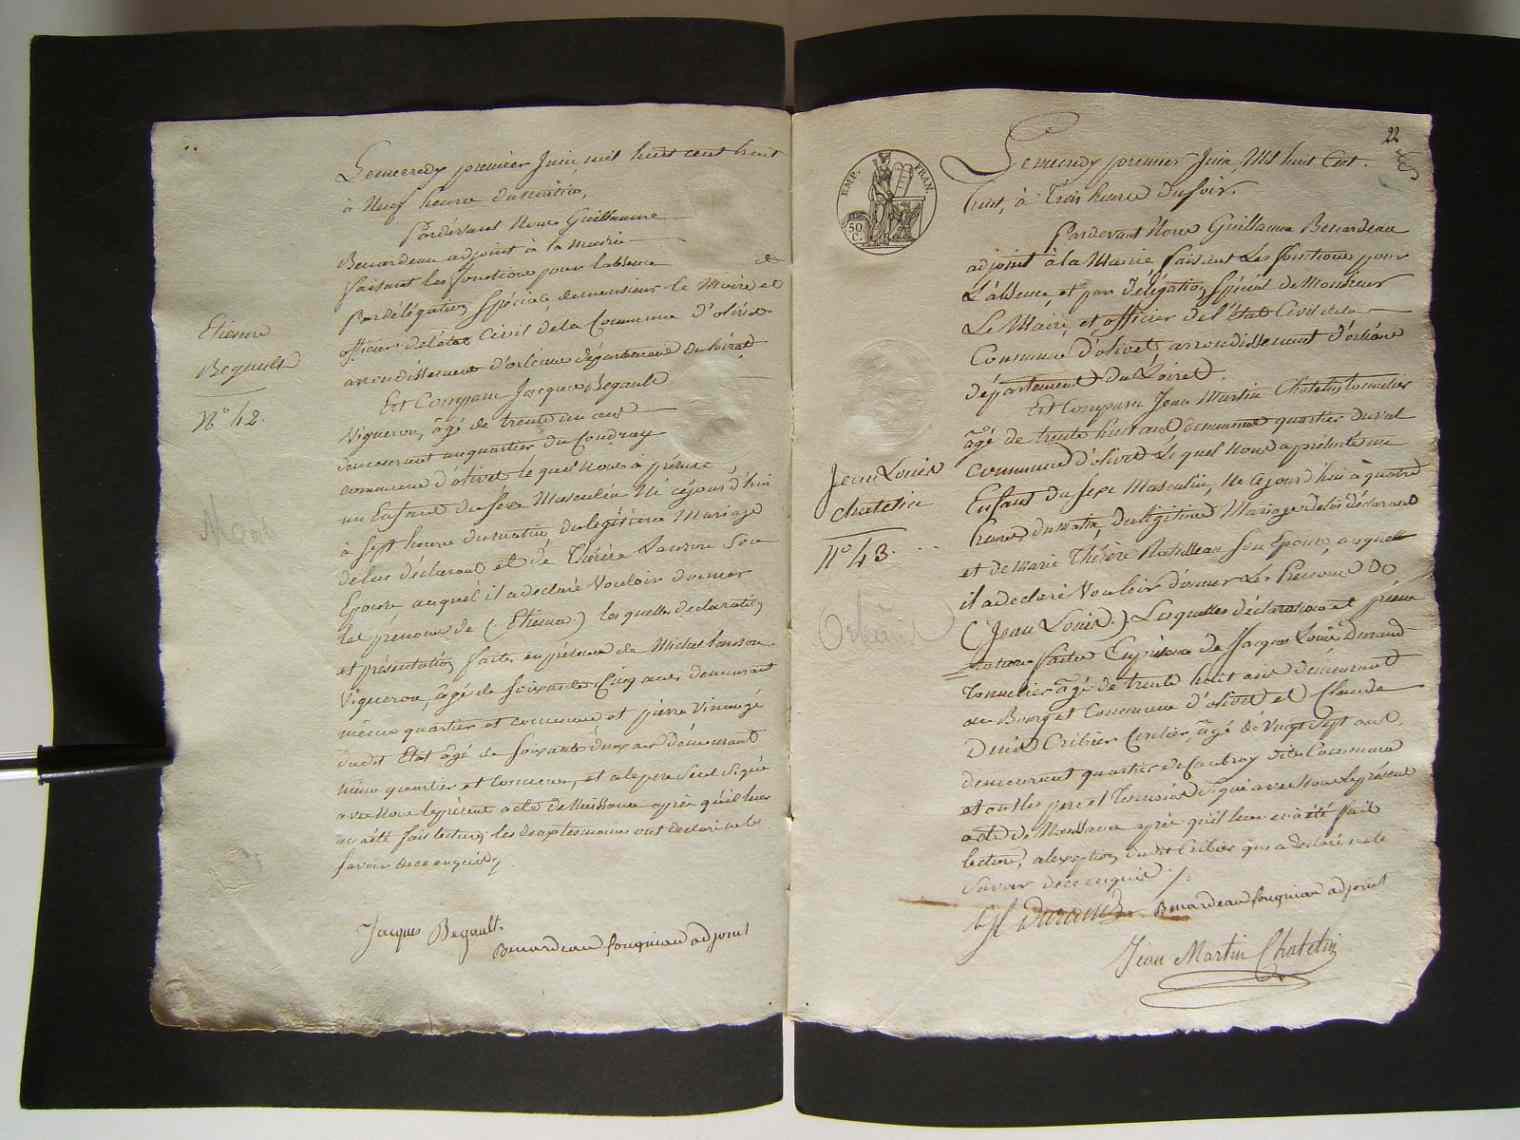 Etienne
Begault
N° 42.
Le mercredy premier Juin, mil huit cent huit
à Neuf heure du matin,
Pardevant Nous Guillaume
Benardeau adjoint à la mairie
faisant les fonctions pour l'absence et
Par délégation Spéciale de monsieur le Maire et
officier de l'état Civil de la Commune d'olivet
arrondissement d'orléans département du loiret
Est Comparu Jacques Begault
Vigneron, âgé de trente un ans
demeurant au quartier du Coudray
commune d'olivet le quel Nous à présenté
un Enfant du Sexe Masculin Né cejourd'hui
à Sept heure du matin, du légitime Mariage
de lui déclarant et de Thérèse Son
Epouse auquel il a declaré Vouloir donner
les prénoms de (Etienne) les quelles declaration
et présentation faites en présence de Michel
Vigneron, âgé de Soixante Cinq ans demeurant
même quartier et commune et pierre
dudit Etat âgé de Soixante deux ans demeurant
même quartier et commune, et a le pere Seul Signé
avec Nous le présent acte de Naissance après qu'il leur
en a été fait lecture, les deux temoins ont declaré ne le
savoir de ce enquis
Jacques Begault.
Benardeau fougniau adjoint
22
EMP. FRAN.
50
C.
Jean Louis
Chatelin
N° 43.
Orléans
Le mercredy premier Juin, Mil huit Cent
huit, à Trois heure du Soir.
Pardevant Nous Guillaume Benardeau
adjoint à la Mairie faisant Les fonctions pour
L'absence, et par délégation Spécial de Monsieur
Le Maire, et officier de l'état Civil de la
Commune d'olivet, arrondissement d'orléans
département du Loiret.
Est Comparu Jean Martin Chatelin tonnelier
âgé de trente huit ans demeurant quartier du val
Commune d'olivet Le quel Nous a présenté un
Enfant du Sexe Masculin, Né Cejourd'hui à quatre
heure du matin, du légitime Mariage de lui déclarant
et de Marie Thérèse Son Epouse, auquel
il a declaré Vouloir donner Les Prenoms De
(Jean Louis.) Lesquelles déclaration et
faites En présence de Jacques Louis Durand
Tonnelier âgé de trente huit ans demeurant
au Bourg et Commune d'olivet et Claude
Denis Cribier âgé de Vingt Sept ans,
demeurant quartier de Caubray dite Commune
et ont les pere et Temoins Signé avec Nous Le présent
acte de Naissance après qu'il leur en a été fait
lecture, a l'exception dudit Cribier qui a declaré ne le
Savoir de ce enquis
Durand
Benardeau fougniau adjoint
Jean Martin Chatelin